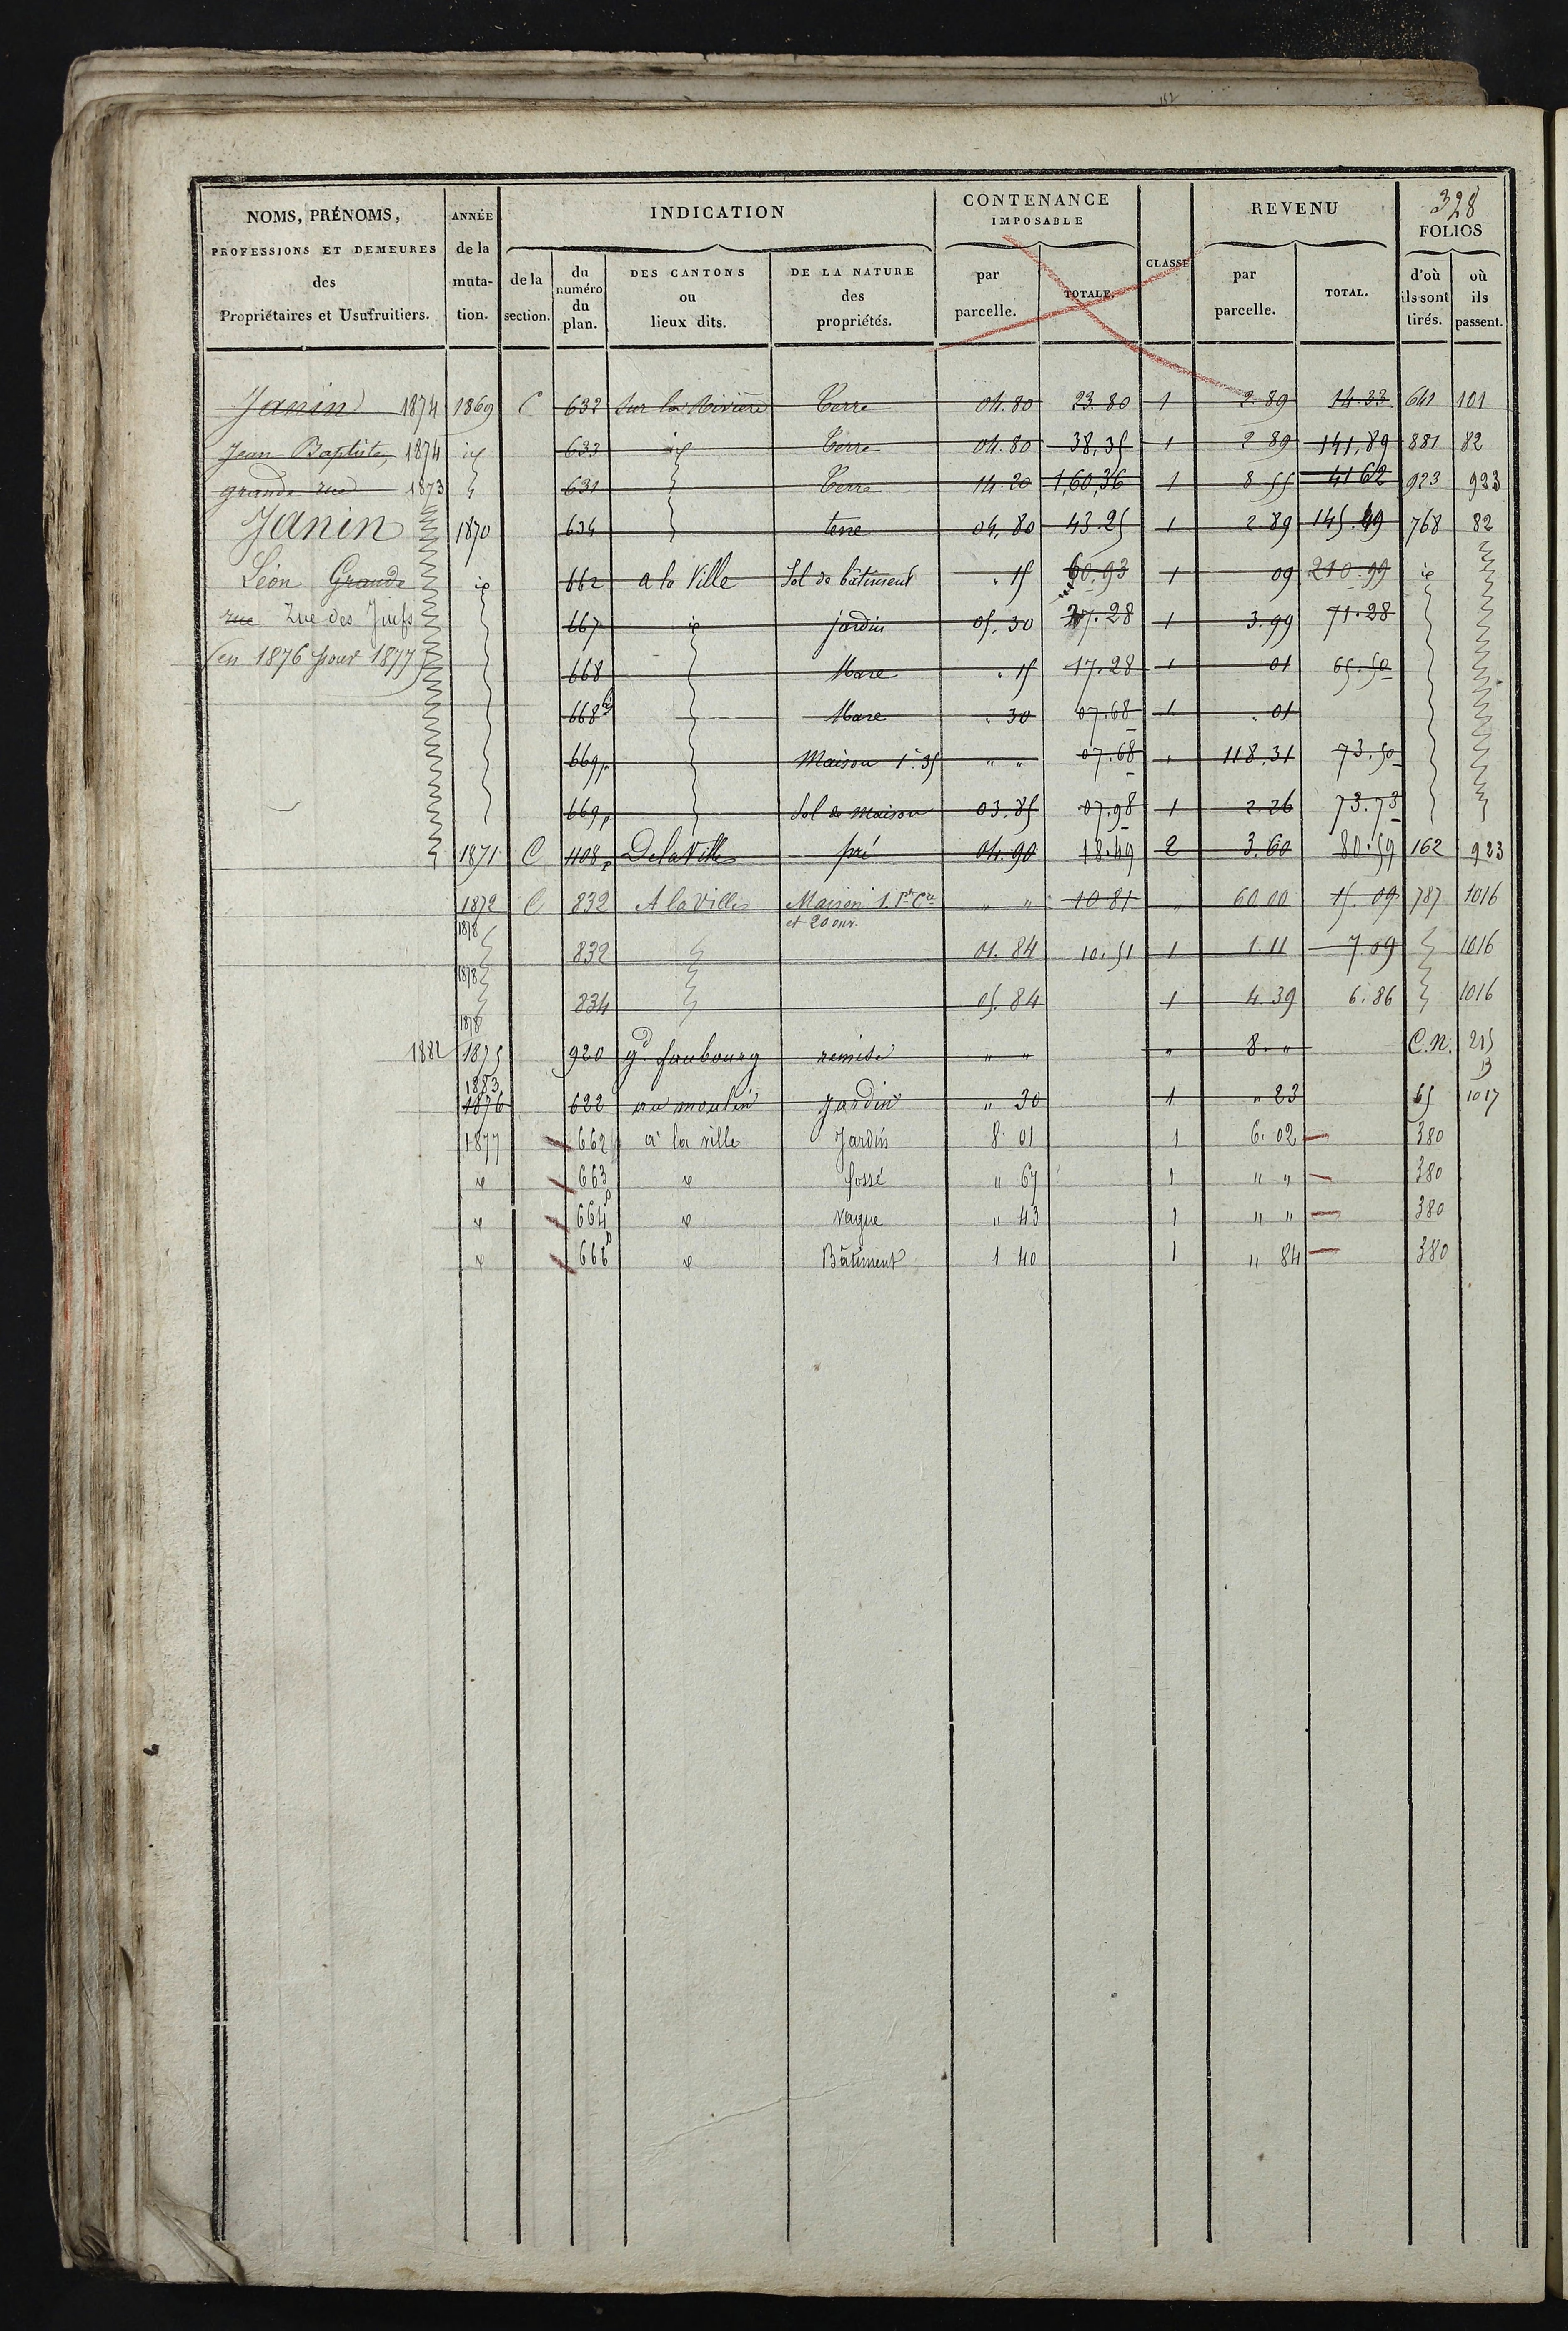 152
328
NOMS, PRÉNOMS, PROFESSIONS ET DEMEURES des Propriétaires et Usufruitiers. ANNÉE de la muta- tion. INDICATION de la section. du numéro du plan. DES CANTONS ou lieux dits. DE LA NATURE des propriétés. CONTENANCE IMPOSABLE par parcelle. TOTALE. CLASSE REVENU par parcelle. TOTAL. FOLIOS d'où ils sont tirés. où ils passent.
Janin 1874 1869 C 632 Sur la Rivière Terre 04.80 23.80 1 2.89 14.33 641 101
Jean Baptiste 1874 id 633 id Terre 04.80 38,35 1 2 89 141,89 881 82
grande rue 1873 631 Terre 14.20 1,60,36 1 8 55 41 62 923 923
Janin 1870 634 terre 04,80 43.25 1 2.89 145.49 768 82
Léon Grande id 662 a la Ville Sol de bâtiment . 15 60,93 1 09 210.99 id
rue Rue des Juifs 667 id jardin 05.30 27.28 1 3.99 71.28
(en 1876 pour 1877) 668 Mare . 15 17.28 1 01 65.50
668 bis Mare . 30 07.68 1 . 01
669p Maison 1e. 35 " " 07.68 " 118,31 73.50
669p Sol de Maison 03.85 07.98 1 2.26 73.73
1871 C 1108p De la Ville pré 04.90 18.49 2 3.60 80.59 162 923
1872 C 832 A la Ville Maison 1. Pte Cre " " 10 81 " 60 00 15.09 787 1016
1878 et 20 ouv.
832 01.84 10.51 1 1.11 7 09 1016
1878
834 05.84 1 4.39 6.86 1016
1878
1882 1875 920 gd faubourg remise " " " 8. " C.N. 215
1883 13
1876 622 au moulin Jardin " 30 1 " 23 65 1017
1877 662 à la ville Jardin 8.01 1 6.02 380
id 663 id fossé " 67 1 " " 380
id 664p id vague " 43 1 " " 380
id 666p id Bâtiment 1 40 1 " 84 380